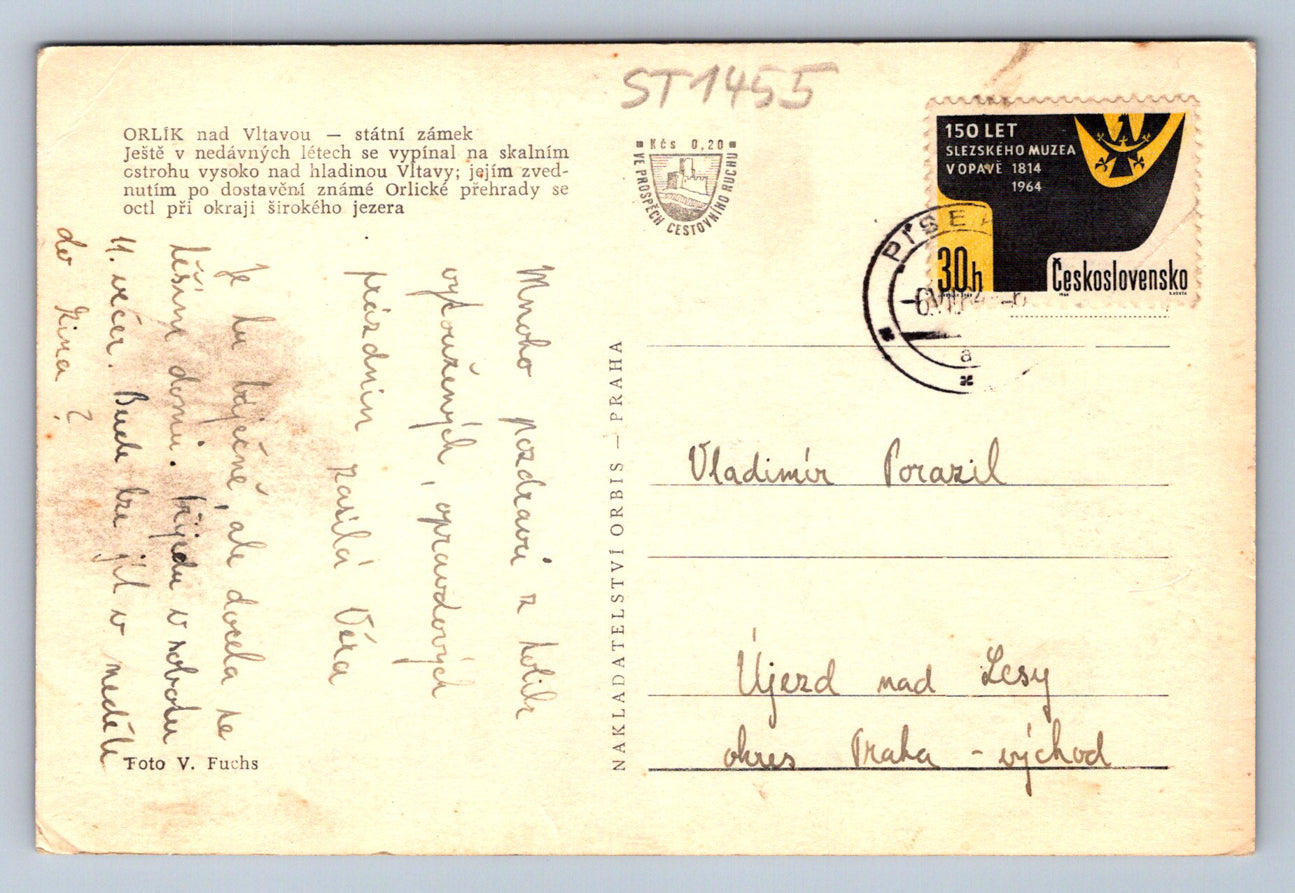 ST1455
ORLÍK nad Vltavou — státní zámek
Ještě v nedávných létech se vypínal na skalním
ostrohu vysoko nad hladinou Vltavy; jejím zved-
nutím po dostavění známé Orlické přehrady se
octl při okraji širokého jezera
Kčs 0,20
VE PROSPĚCH CESTOVNÍHO RUCHU
150 LET
SLEZSKÉHO MUZEA
V OPAVĚ 1814
1964
30h
Československo
PÍSEK
a
Mnoho pozdravů z tolik
vytoužených, opravdových
prázdnin zasílá Věra
Je tu báječně, ale docela se
těším domů. Přijedu v sobotu
11. večer. Bude lze jít v neděli
do kina?
NAKLADATELSTVÍ ORBIS — PRAHA
Vladimír Porazil
Újezd nad Lesy
okres Praha - východ
Foto V. Fuchs